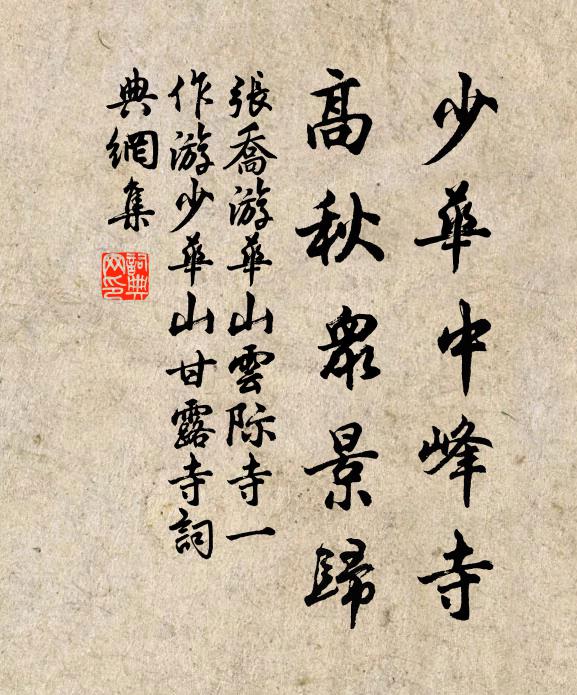 少華中峰寺
高秋衆景歸
張喬游華山雲际寺一
作游少華山甘露寺詞
典網集
詞典
网印